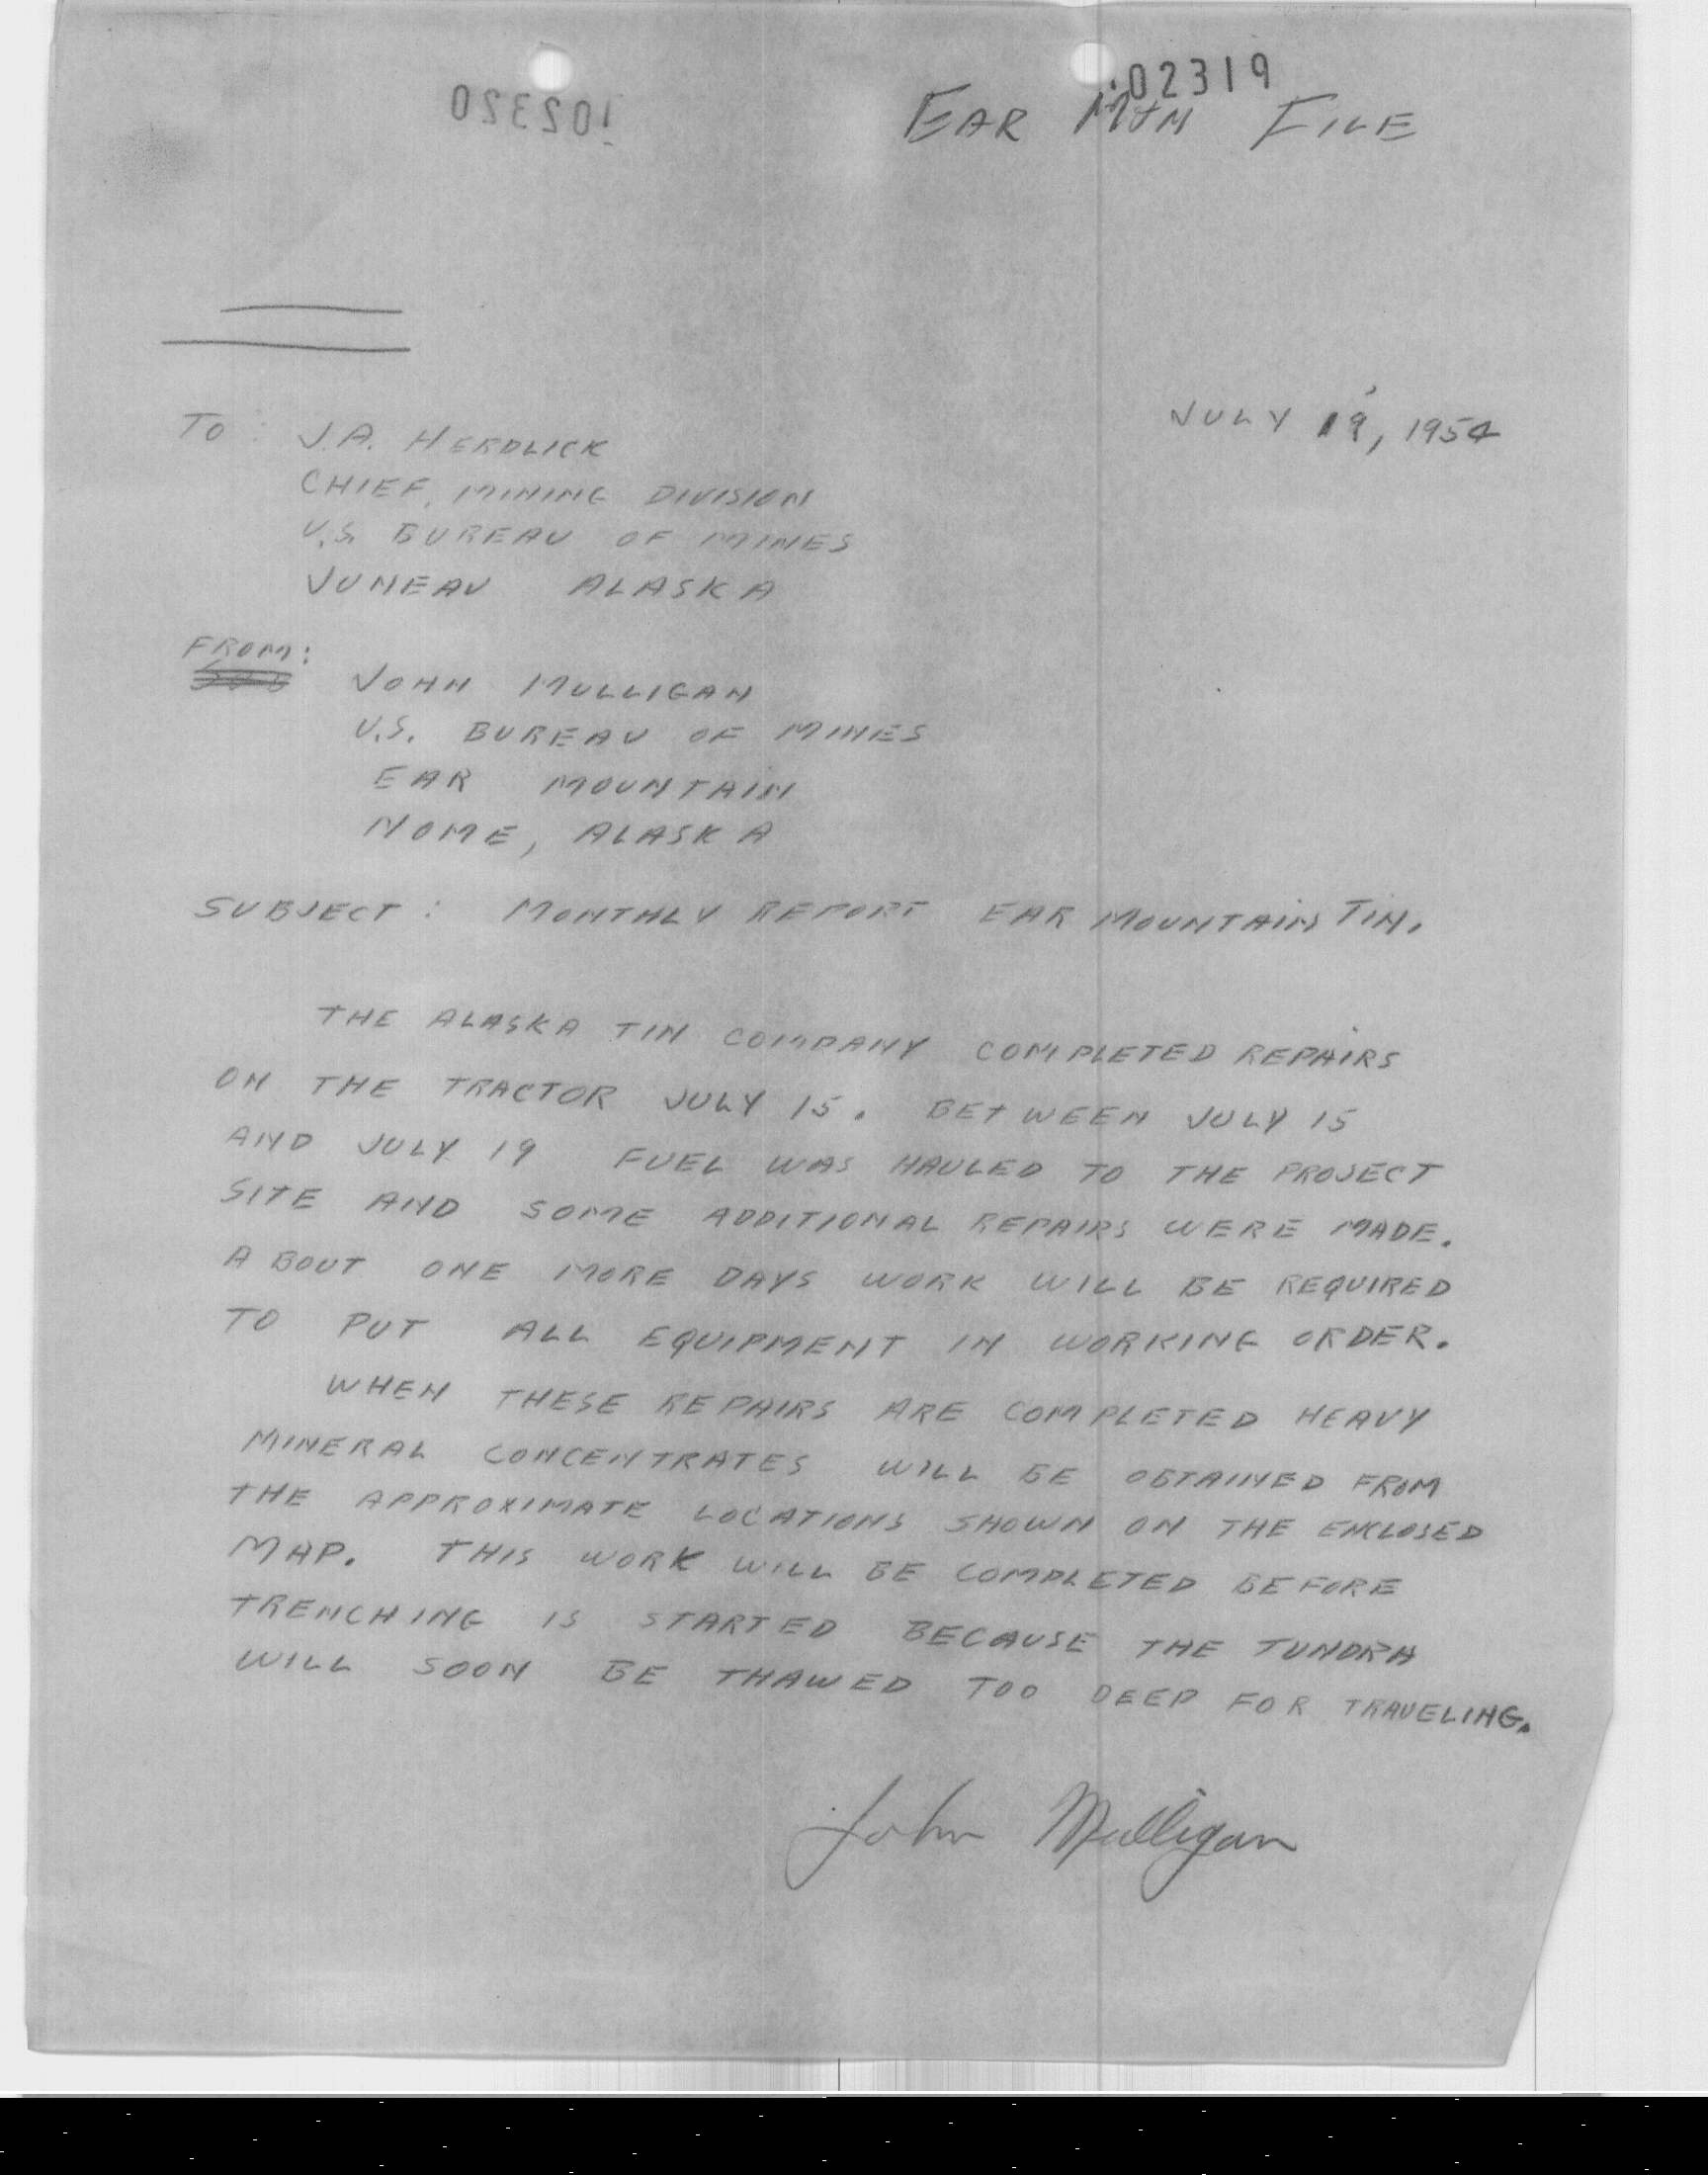 102320
102319
EAR MTN FILE
JULY 19, 1954
TO: J.A. HERDLICK
CHIEF, MINING DIVISION
U.S. BUREAU OF MINES
JUNEAU ALASKA
FROM:
JOHN MULLIGAN
U.S. BUREAU OF MINES
EAR MOUNTAIN
NOME, ALASKA
SUBJECT: MONTHLY REPORT EAR MOUNTAIN TIN.
THE ALASKA TIN COMPANY COMPLETED REPAIRS
ON THE TRACTOR JULY 15. BETWEEN JULY 15
AND JULY 19 FUEL WAS HAULED TO THE PROJECT
SITE AND SOME ADDITIONAL REPAIRS WERE MADE.
ABOUT ONE MORE DAYS WORK WILL BE REQUIRED
TO PUT ALL EQUIPMENT IN WORKING ORDER.
WHEN THESE REPAIRS ARE COMPLETED HEAVY
MINERAL CONCENTRATES WILL BE OBTAINED FROM
THE APPROXIMATE LOCATIONS SHOWN ON THE ENCLOSED
MAP. THIS WORK WILL BE COMPLETED BEFORE
TRENCHING IS STARTED BECAUSE THE TUNDRA
WILL SOON BE THAWED TOO DEEP FOR TRAVELING.
John Mulligan